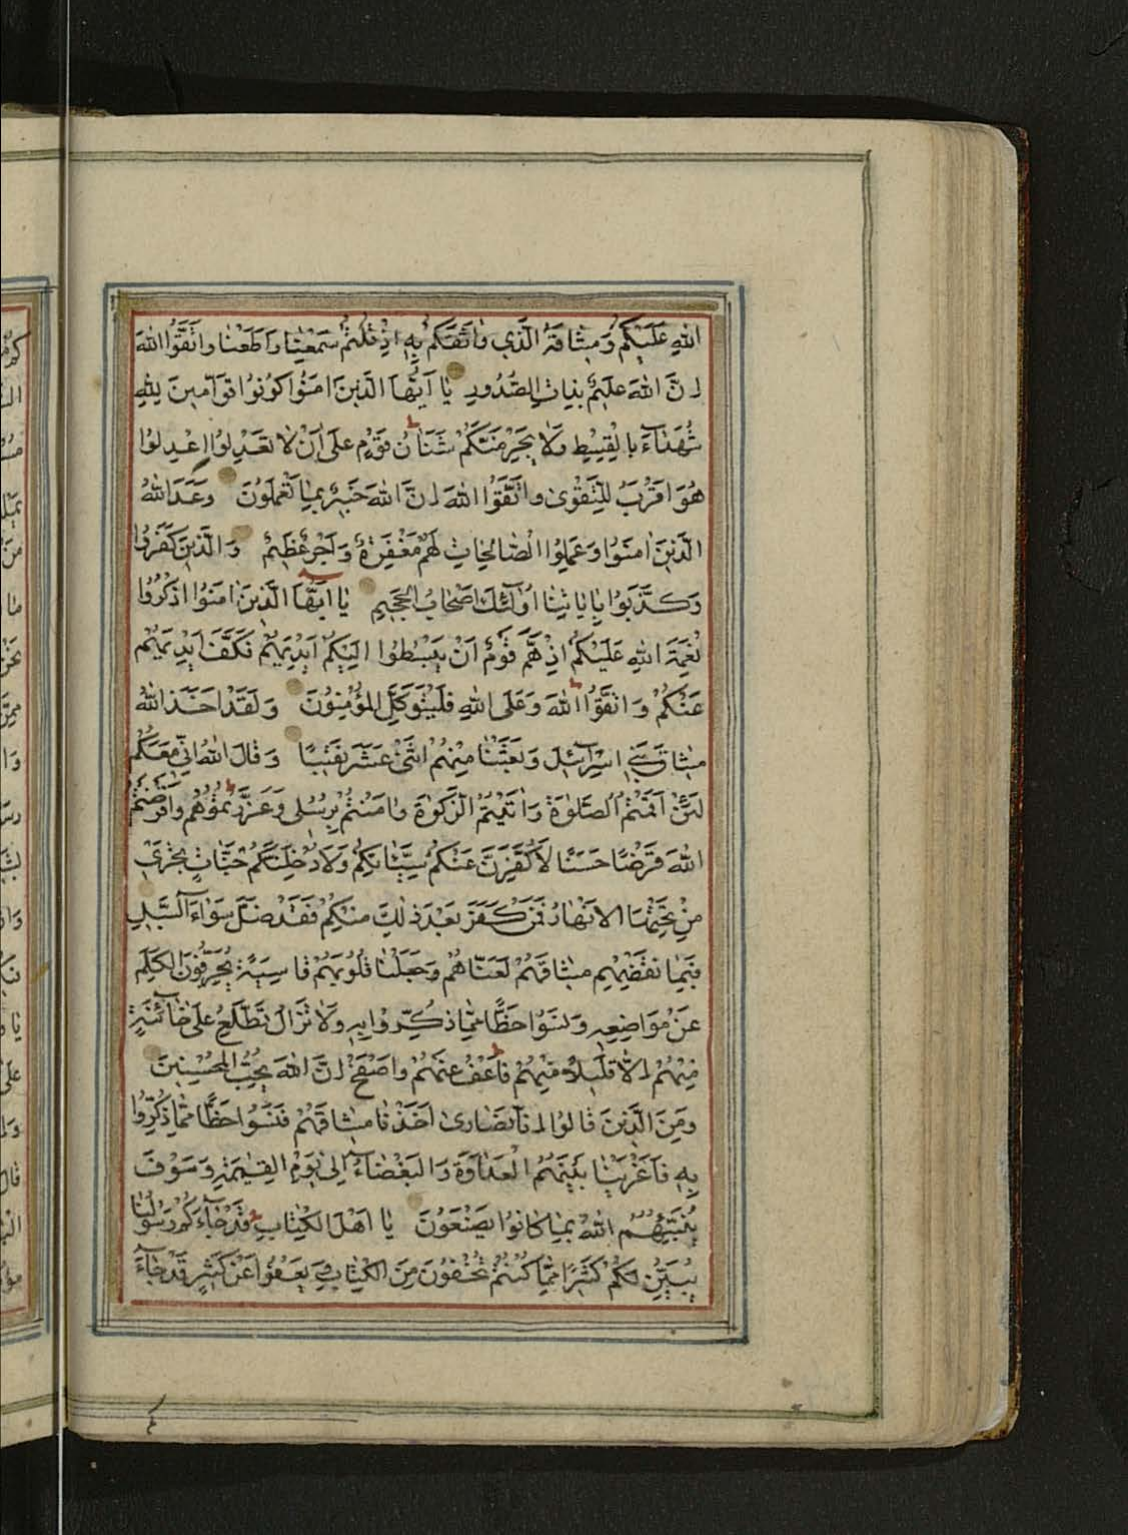 اللهِ عَلَيْكُمْ وَمِيثَاقَهُ الَّذِي وَاثَقَكُمْ بِهِ اِذْ قُلْتُمْ سَمِعْنَا وَاَطَعْنَا وَاتَّقُوا اللهَ
اِنَّ اللهَ عَلِيمٌ بِذَاتِ الصُّدُورِ يَا اَيُّهَا الَّذِينَ اٰمَنُوا كُونُوا قَوَّامِينَ لِلّٰهِ
شُهَدَاءَ بِالْقِسْطِ وَلَا يَجْرِمَنَّكُمْ شَنَاٰنُ قَوْمٍ عَلٰى اَنْ لَا تَعْدِلُوا اِعْدِلُوا
هُوَ اَقْرَبُ لِلتَّقْوٰى وَاتَّقُوا اللهَ اِنَّ اللهَ خَبِيرٌ بِمَا تَعْمَلُونَ وَعَدَ اللهُ
الَّذِينَ اٰمَنُوا وَعَمِلُوا الصَّالِحَاتِ لَهُمْ مَغْفِرَةٌ وَاَجْرٌ عَظِيمٌ وَالَّذِينَ كَفَرُوا
وَكَذَّبُوا بِاٰيَاتِنَا اُولٰئِكَ اَصْحَابُ الْجَحِيمِ يَا اَيُّهَا الَّذِينَ اٰمَنُوا اذْكُرُوا
نِعْمَةَ اللهِ عَلَيْكُمْ اِذْ هَمَّ قَوْمٌ اَنْ يَبْسُطُوا اِلَيْكُمْ اَيْدِيَهُمْ فَكَفَّ اَيْدِيَهُمْ
عَنْكُمْ وَاتَّقُوا اللهَ وَعَلَى اللهِ فَلْيَتَوَكَّلِ الْمُؤْمِنُونَ وَلَقَدْ اَخَذَ اللهُ
مِيثَاقَ بَنِي اِسْرَائِيلَ وَبَعَثْنَا مِنْهُمُ اثْنَيْ عَشَرَ نَقِيبًا وَقَالَ اللهُ اِنِّي مَعَكُمْ
لَئِنْ اَقَمْتُمُ الصَّلٰوةَ وَاٰتَيْتُمُ الزَّكٰوةَ وَاٰمَنْتُمْ بِرُسُلِي وَعَزَّرْتُمُوهُمْ وَاَقْرَضْتُمُ
اللهَ قَرْضًا حَسَنًا لَاُكَفِّرَنَّ عَنْكُمْ سَيِّئَاتِكُمْ وَلَاُدْخِلَنَّكُمْ جَنَّاتٍ تَجْرِي
مِنْ تَحْتِهَا الْاَنْهَارُ فَمَنْ كَفَرَ بَعْدَ ذٰلِكَ مِنْكُمْ فَقَدْ ضَلَّ سَوَاءَ السَّبِيلِ
فَبِمَا نَقْضِهِمْ مِيثَاقَهُمْ لَعَنَّاهُمْ وَجَعَلْنَا قُلُوبَهُمْ قَاسِيَةً يُحَرِّفُونَ الْكَلِمَ
عَنْ مَوَاضِعِهِ وَنَسُوا حَظًّا مِمَّا ذُكِّرُوا بِهِ وَلَا تَزَالُ تَطَّلِعُ عَلٰى خَائِنَةٍ
مِنْهُمْ اِلَّا قَلِيلًا مِنْهُمْ فَاعْفُ عَنْهُمْ وَاصْفَحْ اِنَّ اللهَ يُحِبُّ الْمُحْسِنِينَ
وَمِنَ الَّذِينَ قَالُوا اِنَّا نَصَارٰى اَخَذْنَا مِيثَاقَهُمْ فَنَسُوا حَظًّا مِمَّا ذُكِّرُوا
بِهِ فَاَغْرَيْنَا بَيْنَهُمُ الْعَدَاوَةَ وَالْبَغْضَاءَ اِلٰى يَوْمِ الْقِيٰمَةِ وَسَوْفَ
يُنَبِّئُهُمُ اللهُ بِمَا كَانُوا يَصْنَعُونَ يَا اَهْلَ الْكِتَابِ قَدْ جَاءَكُمْ رَسُولُنَا
يُبَيِّنُ لَكُمْ كَثِيرًا مِمَّا كُنْتُمْ تُخْفُونَ مِنَ الْكِتَابِ وَيَعْفُوا عَنْ كَثِيرٍ قَدْ جَاءَ